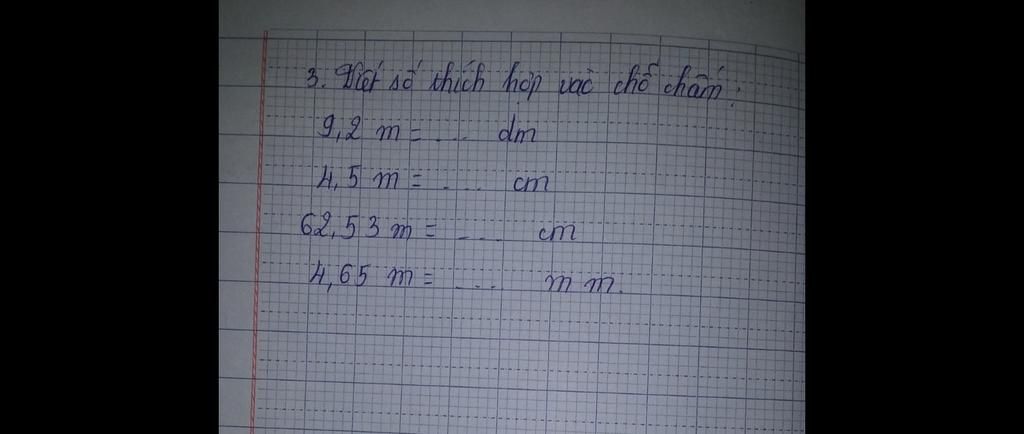 3. Viết số thích hợp vào chỗ chấm:
9,2 m = .... dm
4,5 m = .... cm
62,53 m = .... cm
4,65 m = .... mm.